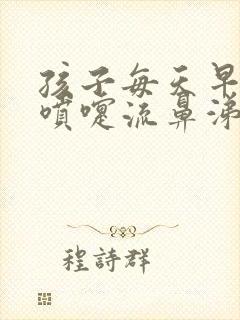 孩子每天早
噴嚏流鼻涕
程詩群